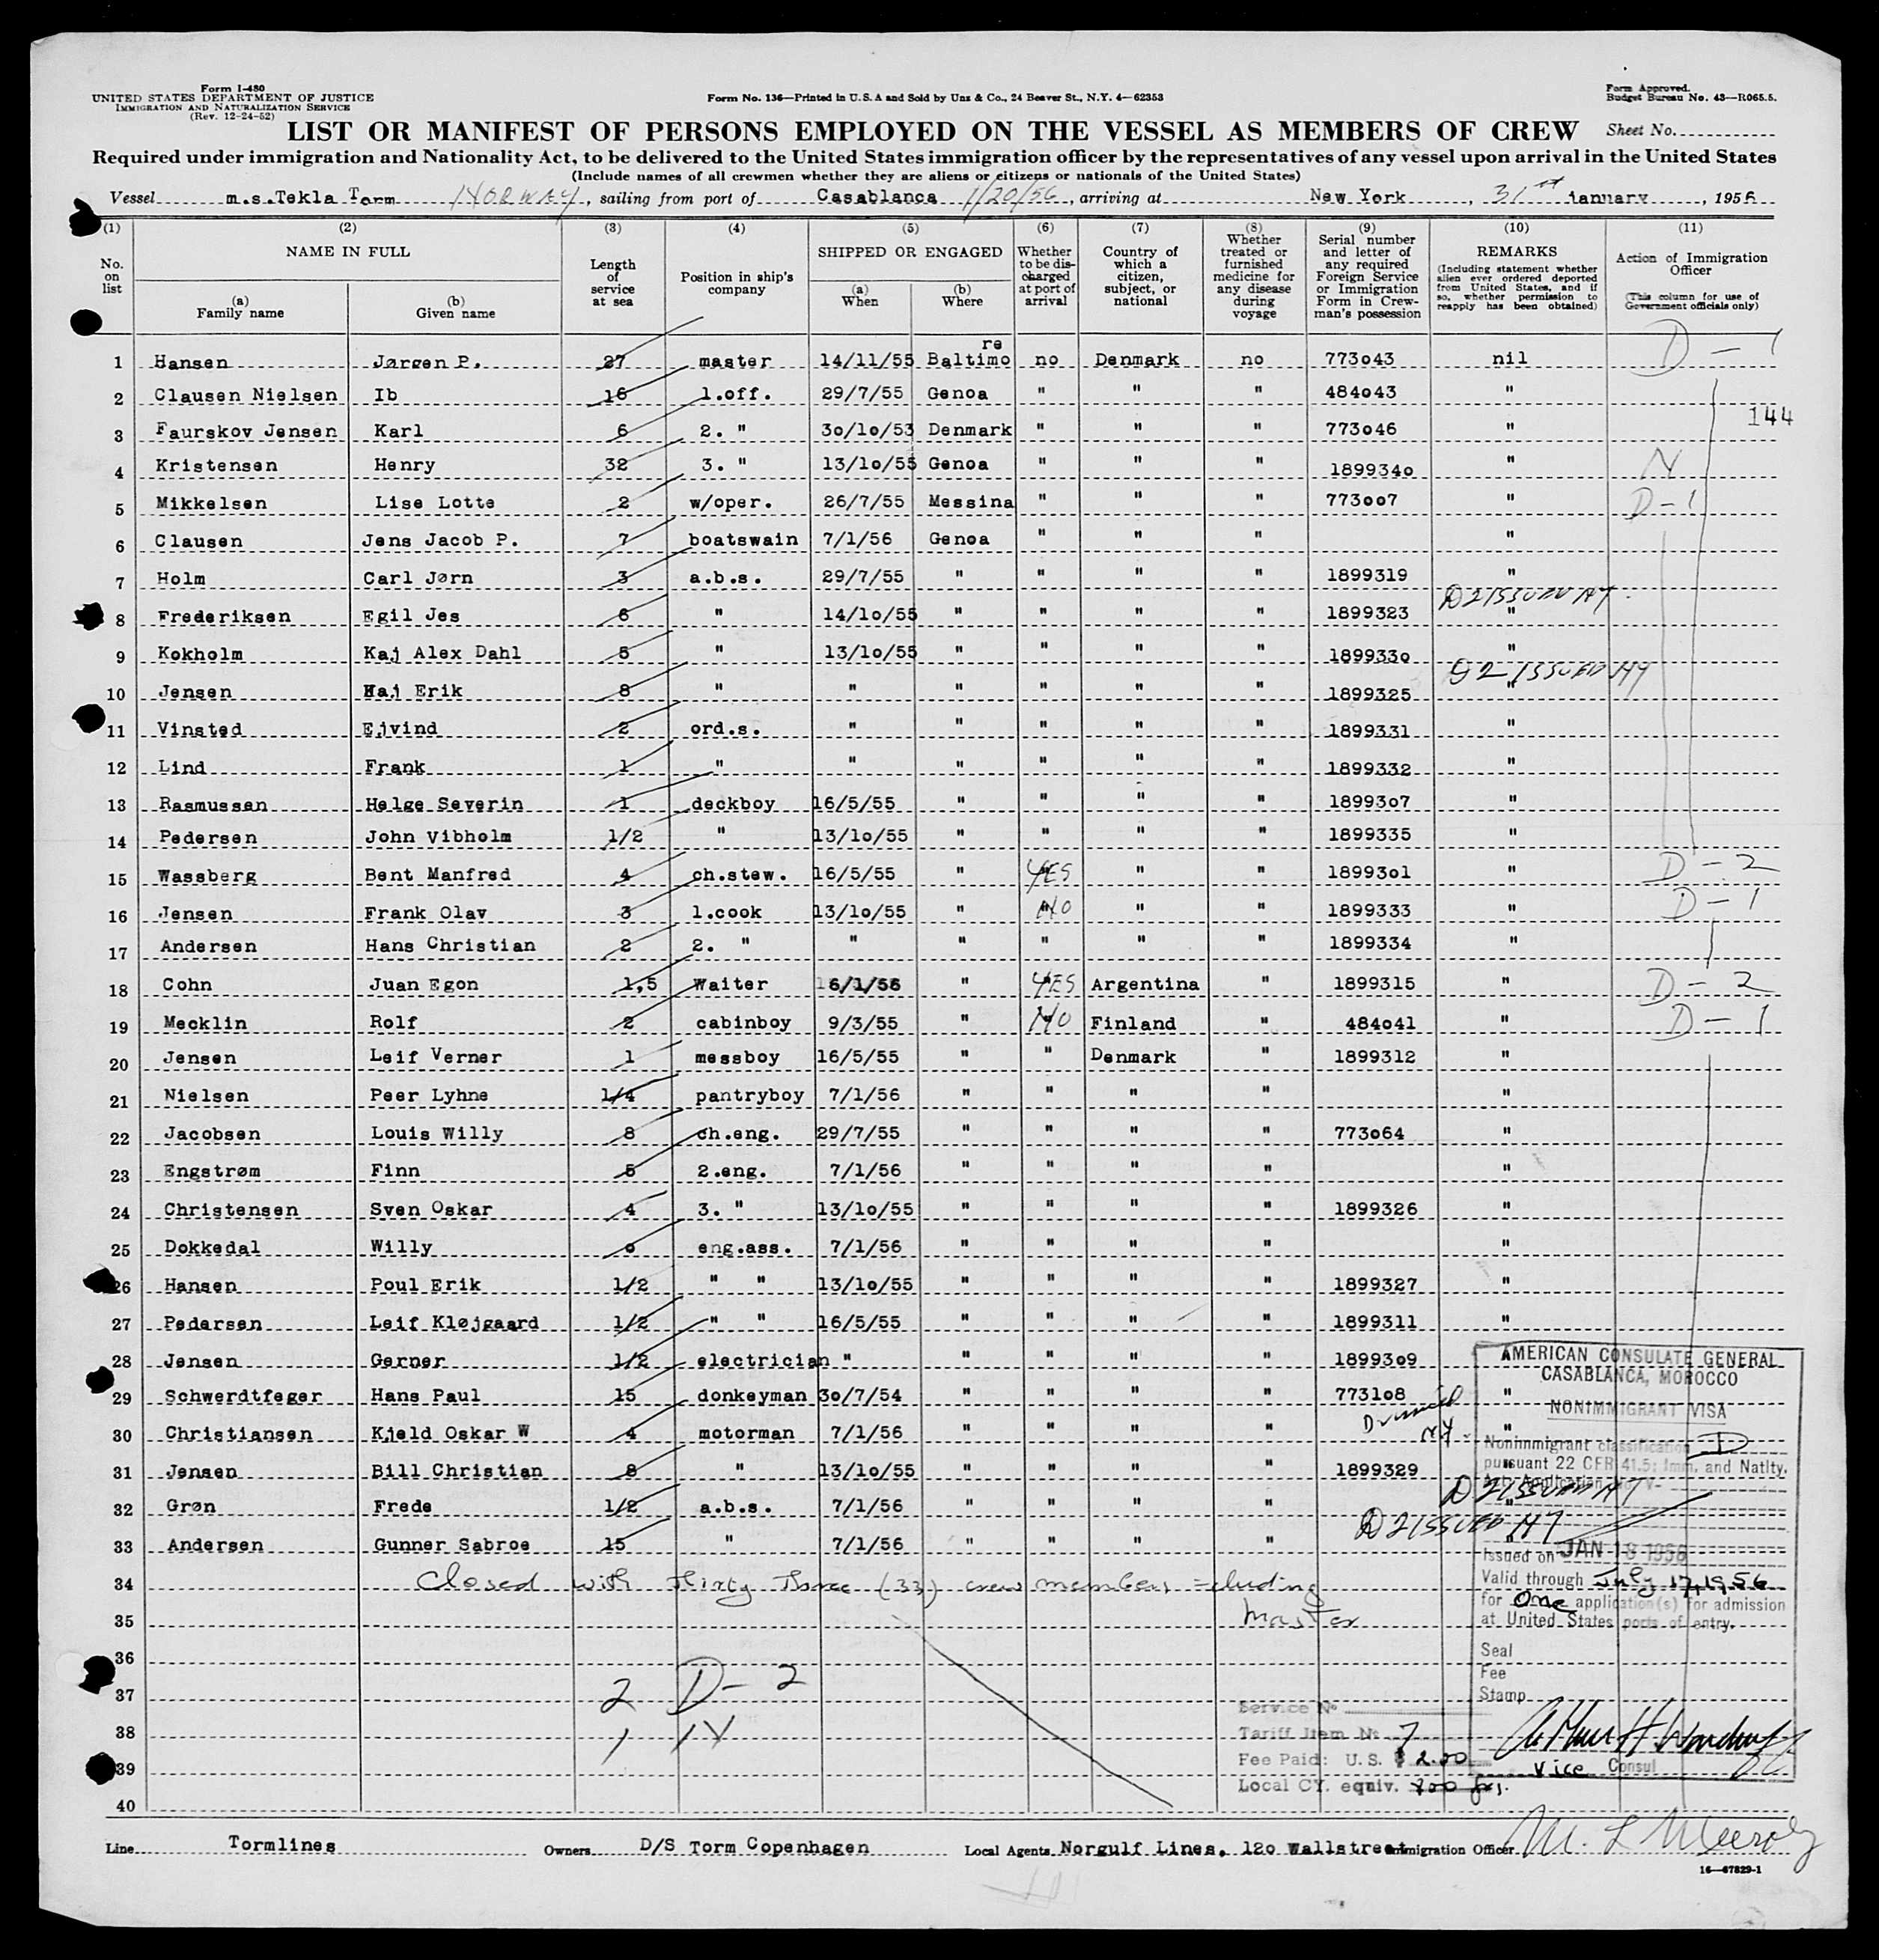 Form I-480
UNITED STATES DEPARTMENT OF JUSTICE
IMMIGRATION AND NATURALIZATION SERVICE
(Rev. 12-24-52)
Form No. 136—Printed in U.S.A and Sold by Unz & Co., 24 Beaver St., N.Y. 4—62353
Form Approved.
Budget Bureau No. 43—R065.5.
LIST OR MANIFEST OF PERSONS EMPLOYED ON THE VESSEL AS MEMBERS OF CREW
Sheet No.
Required under immigration and Nationality Act, to be delivered to the United States immigration officer by the representatives of any vessel upon arrival in the United States
(Include names of all crewmen whether they are aliens or citizens or nationals of the United States)
Vessel m.s.Tekla Torm NORWAY, sailing from port of Casablanca 1/20/56, arriving at New York, 31st january, 1956
(1) No. on list
(2) NAME IN FULL (a) Family name (b) Given name
(3) Length of service at sea
(4) Position in ship's company
(5) SHIPPED OR ENGAGED (a) When (b) Where
(6) Whether to be discharged at port of arrival
(7) Country of which a citizen, subject, or national
(8) Whether treated or furnished medicine for any disease during voyage
(9) Serial number and letter of any required Foreign Service or Immigration Form in Crewman's possession
(10) REMARKS (Including statement whether alien ever ordered deported from United States, and if so, whether permission to reapply has been obtained)
(11) Action of Immigration Officer (This column for use of Government officials only)
1 Hansen Jørgen P. 27 master 14/11/55 Baltimore no Denmark no 773043 nil D-1
2 Clausen Nielsen Ib 16 1.off. 29/7/55 Genoa " " " 484043 "
144
3 Faurskov Jensen Karl 6 2. " 30/10/53 Denmark " " " 773046 "
4 Kristensen Henry 32 3. " 13/10/55 Genoa " " " 1899340 " N
5 Mikkelsen Lise Lotte 2 w/oper. 26/7/55 Messina " " " 773007 " D-1
6 Clausen Jens Jacob P. 7 boatswain 7/1/56 Genoa " " " "
7 Holm Carl Jørn 3 a.b.s. 29/7/55 " " " " 1899319 "
D2 ISSUED NY.
8 Frederiksen Egil Jes 6 " 14/10/55 " " " " 1899323 "
9 Kokholm Kaj Alex Dahl 5 " 13/10/55 " " " " 1899330 "
D2 ISSUED NY
10 Jensen Kaj Erik 8 " " " " " " 1899325 "
11 Vinsted Ejvind 2 ord.s. " " " " " 1899331 "
12 Lind Frank 1 " " " " " " 1899332 "
13 Rasmussen Helge Severin 1 deckboy 16/5/55 " " " " 1899307 "
14 Pedersen John Vibholm 1/2 " 13/10/55 " " " " 1899335 "
15 Wassberg Bent Manfred 4 ch.stew. 16/5/55 " YES " " 1899301 " D-2
16 Jensen Frank Olav 3 1.cook 13/10/55 " NO " " 1899333 " D-1
17 Andersen Hans Christian 2 2. " " " " " " 1899334 "
18 Cohn Juan Egon 1,5 Waiter 6/1/56 " YES Argentina " 1899315 " D-2
19 Mecklin Rolf 2 cabinboy 9/3/55 " NO Finland " 484041 " D-1
20 Jensen Leif Verner 1 messboy 16/5/55 " " Denmark " 1899312 "
21 Nielsen Peer Lyhne 1/4 pantryboy 7/1/56 " " " " "
22 Jacobsen Louis Willy 8 ch.eng. 29/7/55 " " " " 773064 "
23 Engstrøm Finn 5 2.eng. 7/1/56 " " " " "
24 Christensen Sven Oskar 4 3. " 13/10/55 " " " " 1899326 "
25 Dokkedal Willy 0 eng.ass. 7/1/56 " " " " "
26 Hansen Poul Erik 1/2 " " 13/10/55 " " " " 1899327 "
27 Pedersen Leif Kløjgaard 1/2 " " 16/5/55 " " " " 1899311 "
28 Jensen Gerner 1/2 electrician " " " " " 1899309
29 Schwerdtfeger Hans Paul 15 donkeyman 30/7/54 " " " " 773108 "
30 Christiansen Kjeld Oskar W 4 motorman 7/1/56 " " " " NY "
31 Jensen Bill Christian 8 " 13/10/55 " " " " 1899329 "
32 Grøn Frede 1/2 a.b.s. 7/1/56 " " " " D2 ISSUED NY "
33 Andersen Gunner Sabroe 15 " 7/1/56 " " " " D2 ISSUED NY "
34 Closed with thirty three (33) crew members including
35 master
36
37 2 D-2
38 1 N
39
40
AMERICAN CONSULATE GENERAL
CASABLANCA, MOROCCO
NONIMMIGRANT VISA
Nonimmigrant classification D
pursuant 22 CFR 41.5; Imm. and Natlty.
Act; Application No. V-
Issued on JAN 18 1956
Valid through July 17, 1956
for One application(s) for admission
at United States ports of entry.
Seal
Fee
Stamp
Vice Consul
Service No
Tariff Item No 7
Fee Paid: U.S. $ 2.00
Local CY. equiv. 700 frs.
Line Tormlines Owners D/S Torm Copenhagen Local Agents Norgulf Lines, 120 Wallstreet Immigration Officer
16—67829-1